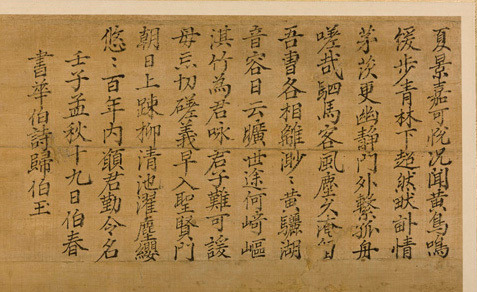 夏景嘉可悦况聞黄鳥鳴
緩步青林下超然情
茅茨更幽静門外繫孤舟
嗟哉駟馬客風塵久淹留
吾曹各相離渺〻黄驪湖
音容日云曠世途何崎嶇
淇竹為君咏君子難可諼
毋忘切磋義早入聖賢門
朝日上踈柳清池濯塵纓
悠〻百年内願君勤令名
壬子孟秋十九日伯春
書伯詩歸伯玉